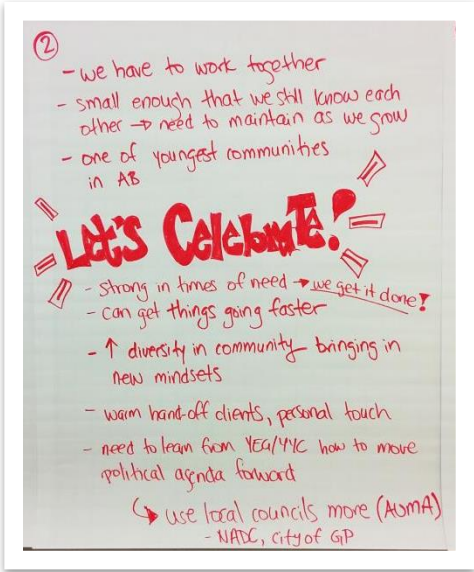 2
- we have to work together
- small enough that we still know each
other → need to maintain as we grow
- one of youngest communities
in AB
Let's Celebrate!
- strong in times of need → we get it done!
- can get things going faster
- ↑ diversity in community bringing in
new mindsets
- warm hand-off clients, personal touch
- need to learn from YEG/YYC how to move
political agenda forward
↳ use local councils more (AUMA)
- NADC, City of GP